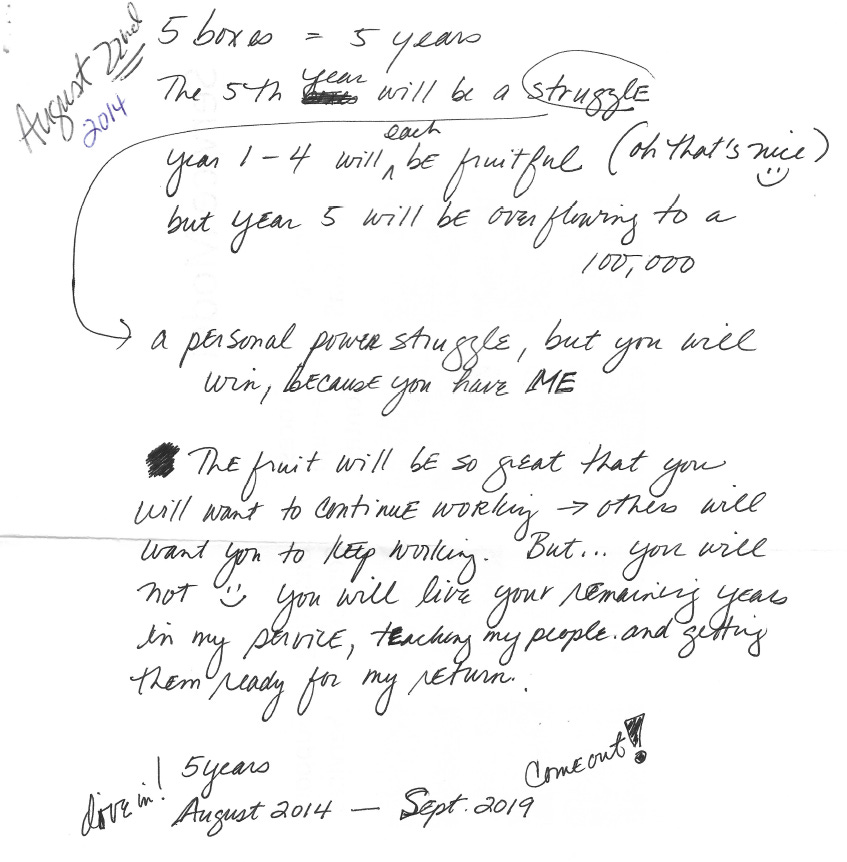 August 22nd
2014
5 boxes = 5 years
The 5th year will be a struggle
year 1-4 will each be fruitful (oh that's nice)
but year 5 will be overflowing to a
100,000
→ a personal power struggle, but you will
win, because you have ME
The fruit will be so great that you
will want to continue working → others will
want you to keep working. But... you will
not :) you will live your remaining years
in my service, teaching my people. and getting
them ready for my return.
dive in! 5 years Come out!
August 2014 — Sept. 2019